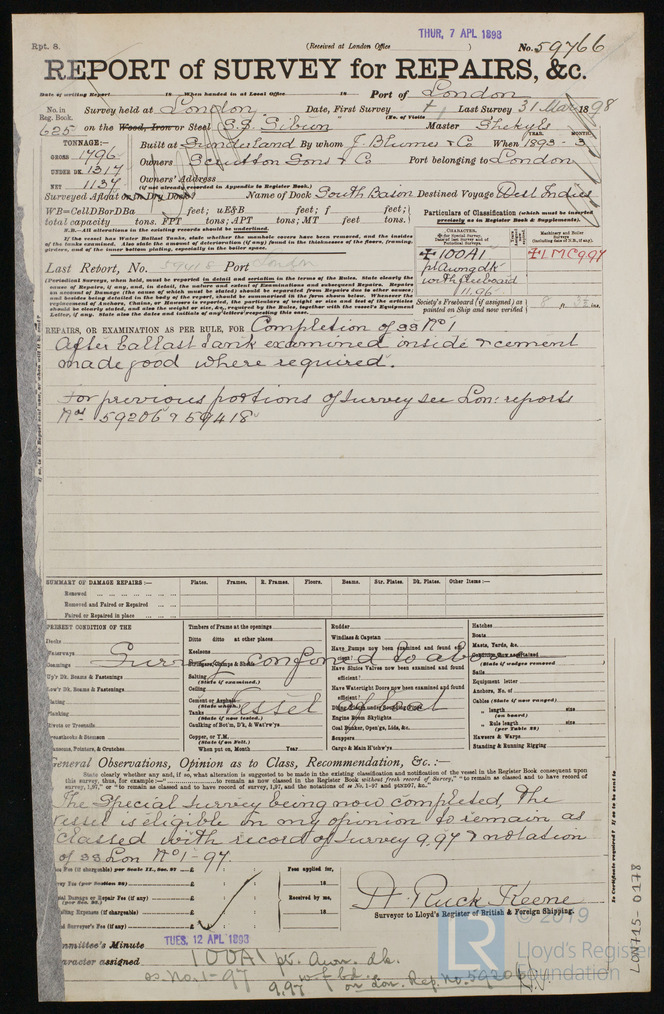 THUR, 7 APL 1898
Rpt. 8.
(Received at London Office )
No. 59766
REPORT of SURVEY for REPAIRS, &c.
Date of writing Report 18 When handed in at Local Office 18 Port of London
No. in Reg. Book. Survey held at London Date, First Survey Last Survey 31 Mar 1898
(No. of Visits 1
625 on the Wood, Iron or Steel S.S. Gibun Master
TONNAGE:—
GROSS 1796
UNDER DK. 1317
NET 1137
Built at Sunderland By whom J. Blumer & Co When 1893 - 3
YEAR. MONTH.
Owners Scrutton Sons & Co Port belonging to London
Owners' Address
(if not already recorded in Appendix to Register Book.)
Surveyed Afloat or in Dry Dock? Name of Dock South Basin Destined Voyage West Indies
WB=CellDBorDBa feet; uE&B feet; f feet;
total capacity tons. FPT tons; APT tons; MT feet tons.
N.B.—All alterations in the existing records should be underlined.
If the vessel has Water Ballast Tanks, state whether the manhole covers have been removed, and the insides
of the tanks examined. Also state the amount of deterioration (if any) found in the thicknesses of the floors, framing,
girders, and of the inner bottom plating, especially in the boiler space.
Particulars of Classification (which must be inserted
precisely as in Register Book & Supplements).
CHARACTER.
Machinery and Boiler Surveys
✠100A1
pt awng dk
with freeboard
11.96
✠LMC 9,97
Last Report, No. 59418 Port London
Society's Freeboard (if assigned) as
painted on Ship and now verified 8 ft. ins.
(Periodical Surveys, when held, must be reported in detail and seriatim in terms of the Rules. State clearly the
cause of Repairs, if any, and, in detail, the nature and extent of Examinations and subsequent Repairs. Repairs
on account of Damage (the cause of which must be stated) should be separated from Repairs due to other causes;
and besides being detailed in the body of the report, should be summarised in the form shewn below. Whenever the
replacement of Anchors, Chains, or Hawsers is reported, the particulars of weight or size and test of the articles
Letter, if any. State also the dates and initials of any letters respecting this case.
REPAIRS, OR EXAMINATION AS PER RULE, FOR Completion of SS No 1
After ballast tank examined inside & cement
made good where required.
For previous portions of survey see Lon: reports
Nos 59206 & 59418
SUMMARY OF DAMAGE REPAIRS:— Plates. Frames. R. Frames. Floors. Beams. Str. Plates. Dk. Plates. Other Items:—
Renewed
Removed and Faired or Repaired
Faired or Repaired in place
PRESENT CONDITION OF THE
Decks
Waterways
Coamings
Up'r Dk. Beams & Fastenings
Low'r Dk. Beams & Fastenings
Plating
Planking
Rivets or Treenails
Breasthooks & Stemson
Transoms, Pointers, & Crutches
Timbers of Frame at the openings
Ditto ditto at other places
Keelsons
Salting
(State if examined.)
Ceiling
Cement or Asphalt
Tanks
(State if now tested.)
Caulking of Bot'm, D'k, & Wat'rw'ys
Copper, or Y.M.
(State if on Felt.)
When put on, Month Year
Rudder
Windlass & Capstan
Have Pumps now been examined and found efficient?
Have Sluice Valves now been examined and found
efficient?
Have Watertight Doors now been examined and found
efficient?
Engine Room Skylights
Coal Bunker, Open'gs, Lids, &c.
Scuppers
Cargo & Main H'tchw'ys
Hatches
Boats
Masts, Yards, &c.
Condition, how ascertained
(State if wedges removed )
Sails
Equipment letter
Anchors, No. of
Cables (State if now ranged)
" length size
(on board)
" Rule length size
(per Table 22)
Hawsers & Warps
Standing & Running Rigging
Survey confined to above
Vessel afloat
General Observations, Opinion as to Class, Recommendation, &c. :—
State clearly whether any, and if so, what alteration is suggested to be made in the existing classification and notification of the vessel in the Register Book consequent upon
this survey, thus, for example:—" to remain as now classed in the Register Book without fresh record of Survey," "to remain as classed and to have record of
survey, 1,97," or "to remain as classed and to have record of survey, 1,97, and the notations of ss No. 1-97 and ptND97, &c."
The Special Survey being now completed, the
vessel is eligible in my opinion to remain as
classed with record of Survey 9,97 & notation
of SS Lon No 1-97.
Fees applied for,
18
Received by me,
18
H. Ruck Keene
Surveyor to Lloyd's Register of British & Foreign Shipping.
Committee's Minute TUES, 12 APL 1898
Character assigned 100A1 pt. Awn. dk.
ss. No. 1-97 w fbd.
9,97 on Lon. Rep. No. 59206
© 2019
LR
Lloyd's Register
Foundation
LON715-0178